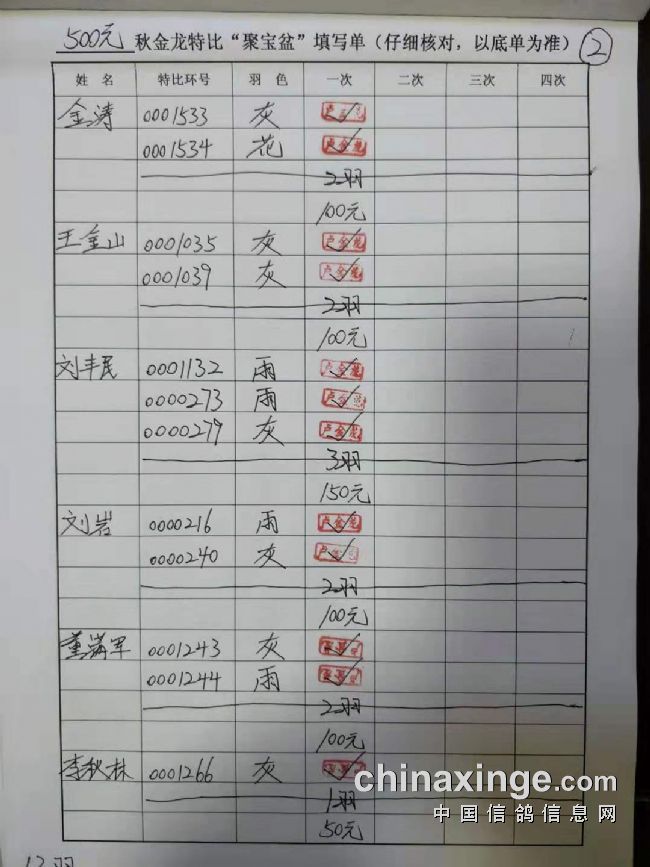 500元 秋金龙特比“聚宝盆”填写单（仔细核对，以底单为准） 2
姓 名 特比环号 羽 色 一次 二次 三次 四次
金涛 0001533 灰
0001534 花
2羽
100元
王金山 0001035 灰 卢金龙
0001039 灰 卢金龙
2羽
100元
刘丰民 0001132 雨 卢金龙
0000273 雨 卢金龙
0000279 灰 卢金龙
3羽
150元
刘岩 0000216 雨 卢金龙
0000240 灰
2羽
100元
董 军 0001243 灰
0001244 雨
2羽
100元
李秋林 0001266 灰
1羽
50元
12羽
chinaxinge.com
中国信鸽信息网